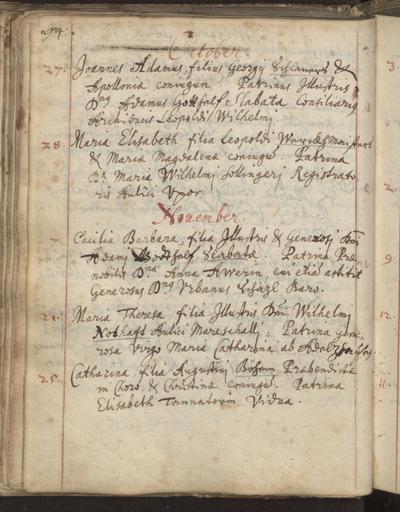 October
27. Joannes Adamus, filius Georgij &
Apollonia conjugum Patrinus Illustris
Dng Adamus Slabata Consiliarig
Archiducis Leopoldi Wilhelmj.
28. Maria Elisabeth filia Leopoldi
& Maria Magdalena conjugū. Patrina
Dã Maria Wilhelmj Sollingerj Registrato
ris Aulici Uxor.
November.
7. Cacilia Barbara, filia Illustris & Generosj Dnj
Adamj Patrina Præ
nobilis Dna Anna Awerin, cui etiā astitit
Generosus Dng Urbanus Baro.
21. Maria Theresa filia Illustris Dnj Wilhelmj
Nothaft Aulici Mareschallj. Patrina Gene
rosa Virgo Maria Catharina ab
25. Catharina filia Augustinj Böhem Præbendistæ
in Choro & Christina conjugū. Patrina
Elisabeth Vidua.